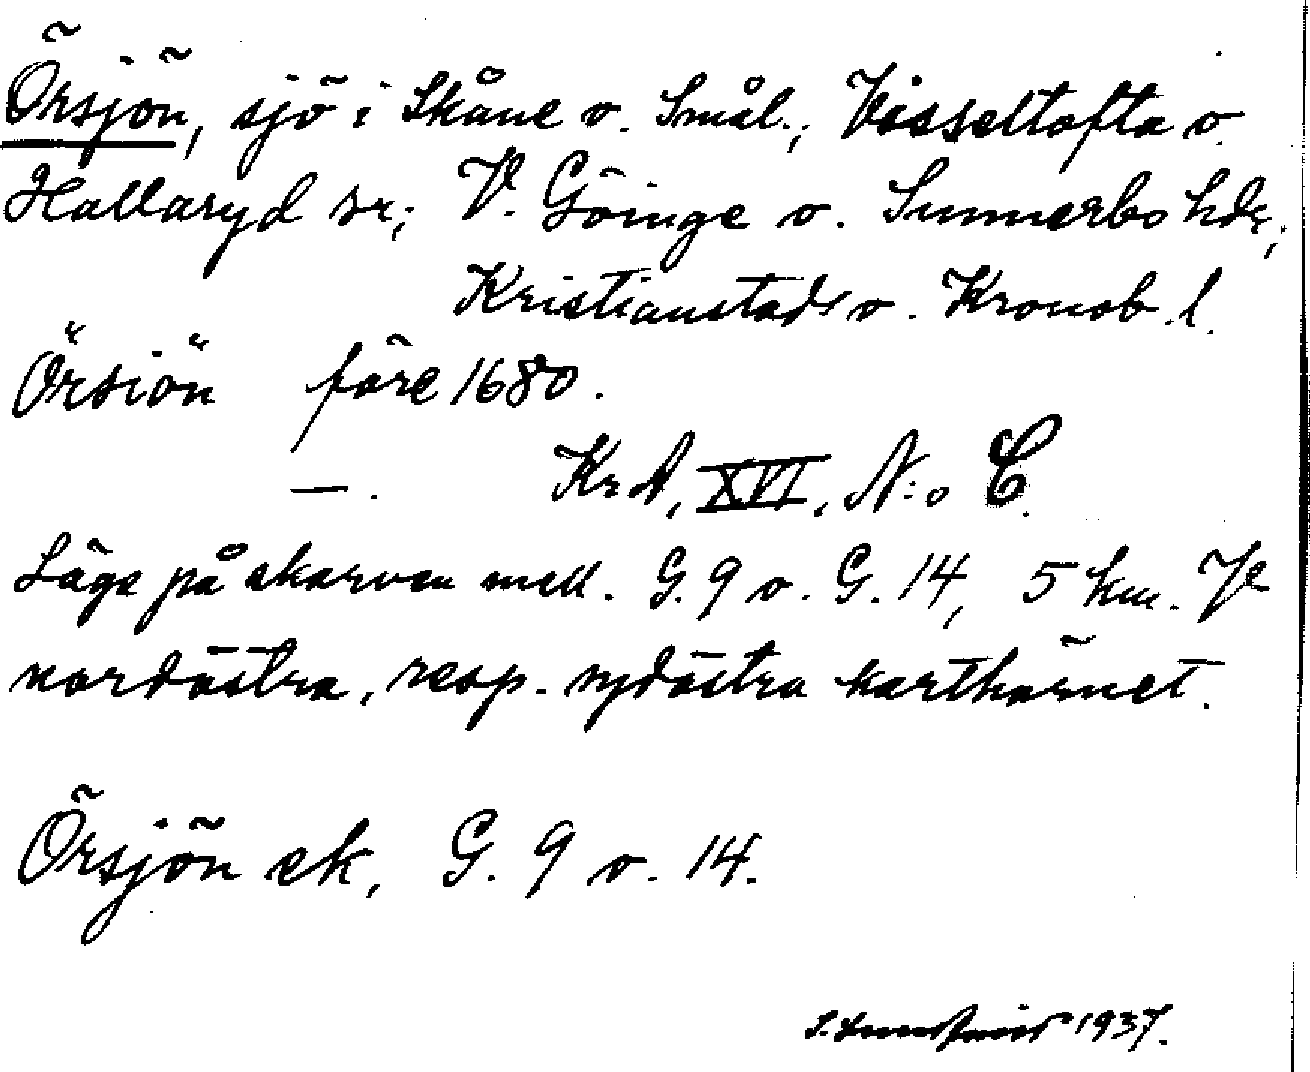 Örsjön, sjö i Skåne o. Smål., Visseltofta o.
Hallaryd sr; V. Göinge o. Sunnerbo hdr,
Kristianstads o. Kronob. l.
Örsiön före 1680.
—. KrA, XVI, N:o C.
Läge på skarven mell. G. 9 o. G. 14, 5 km. V
nordöstra, resp. sydöstra karthörnet.
Örsjön ek, G. 9 o. 14.
1937.